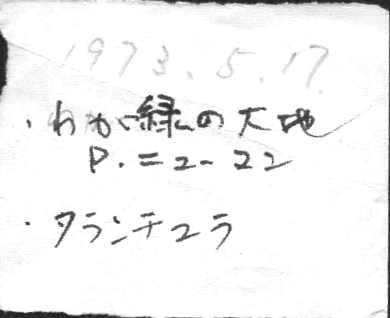 1973.5.17.
・わが緑の大地
P.ニューマン
・タランチュラ